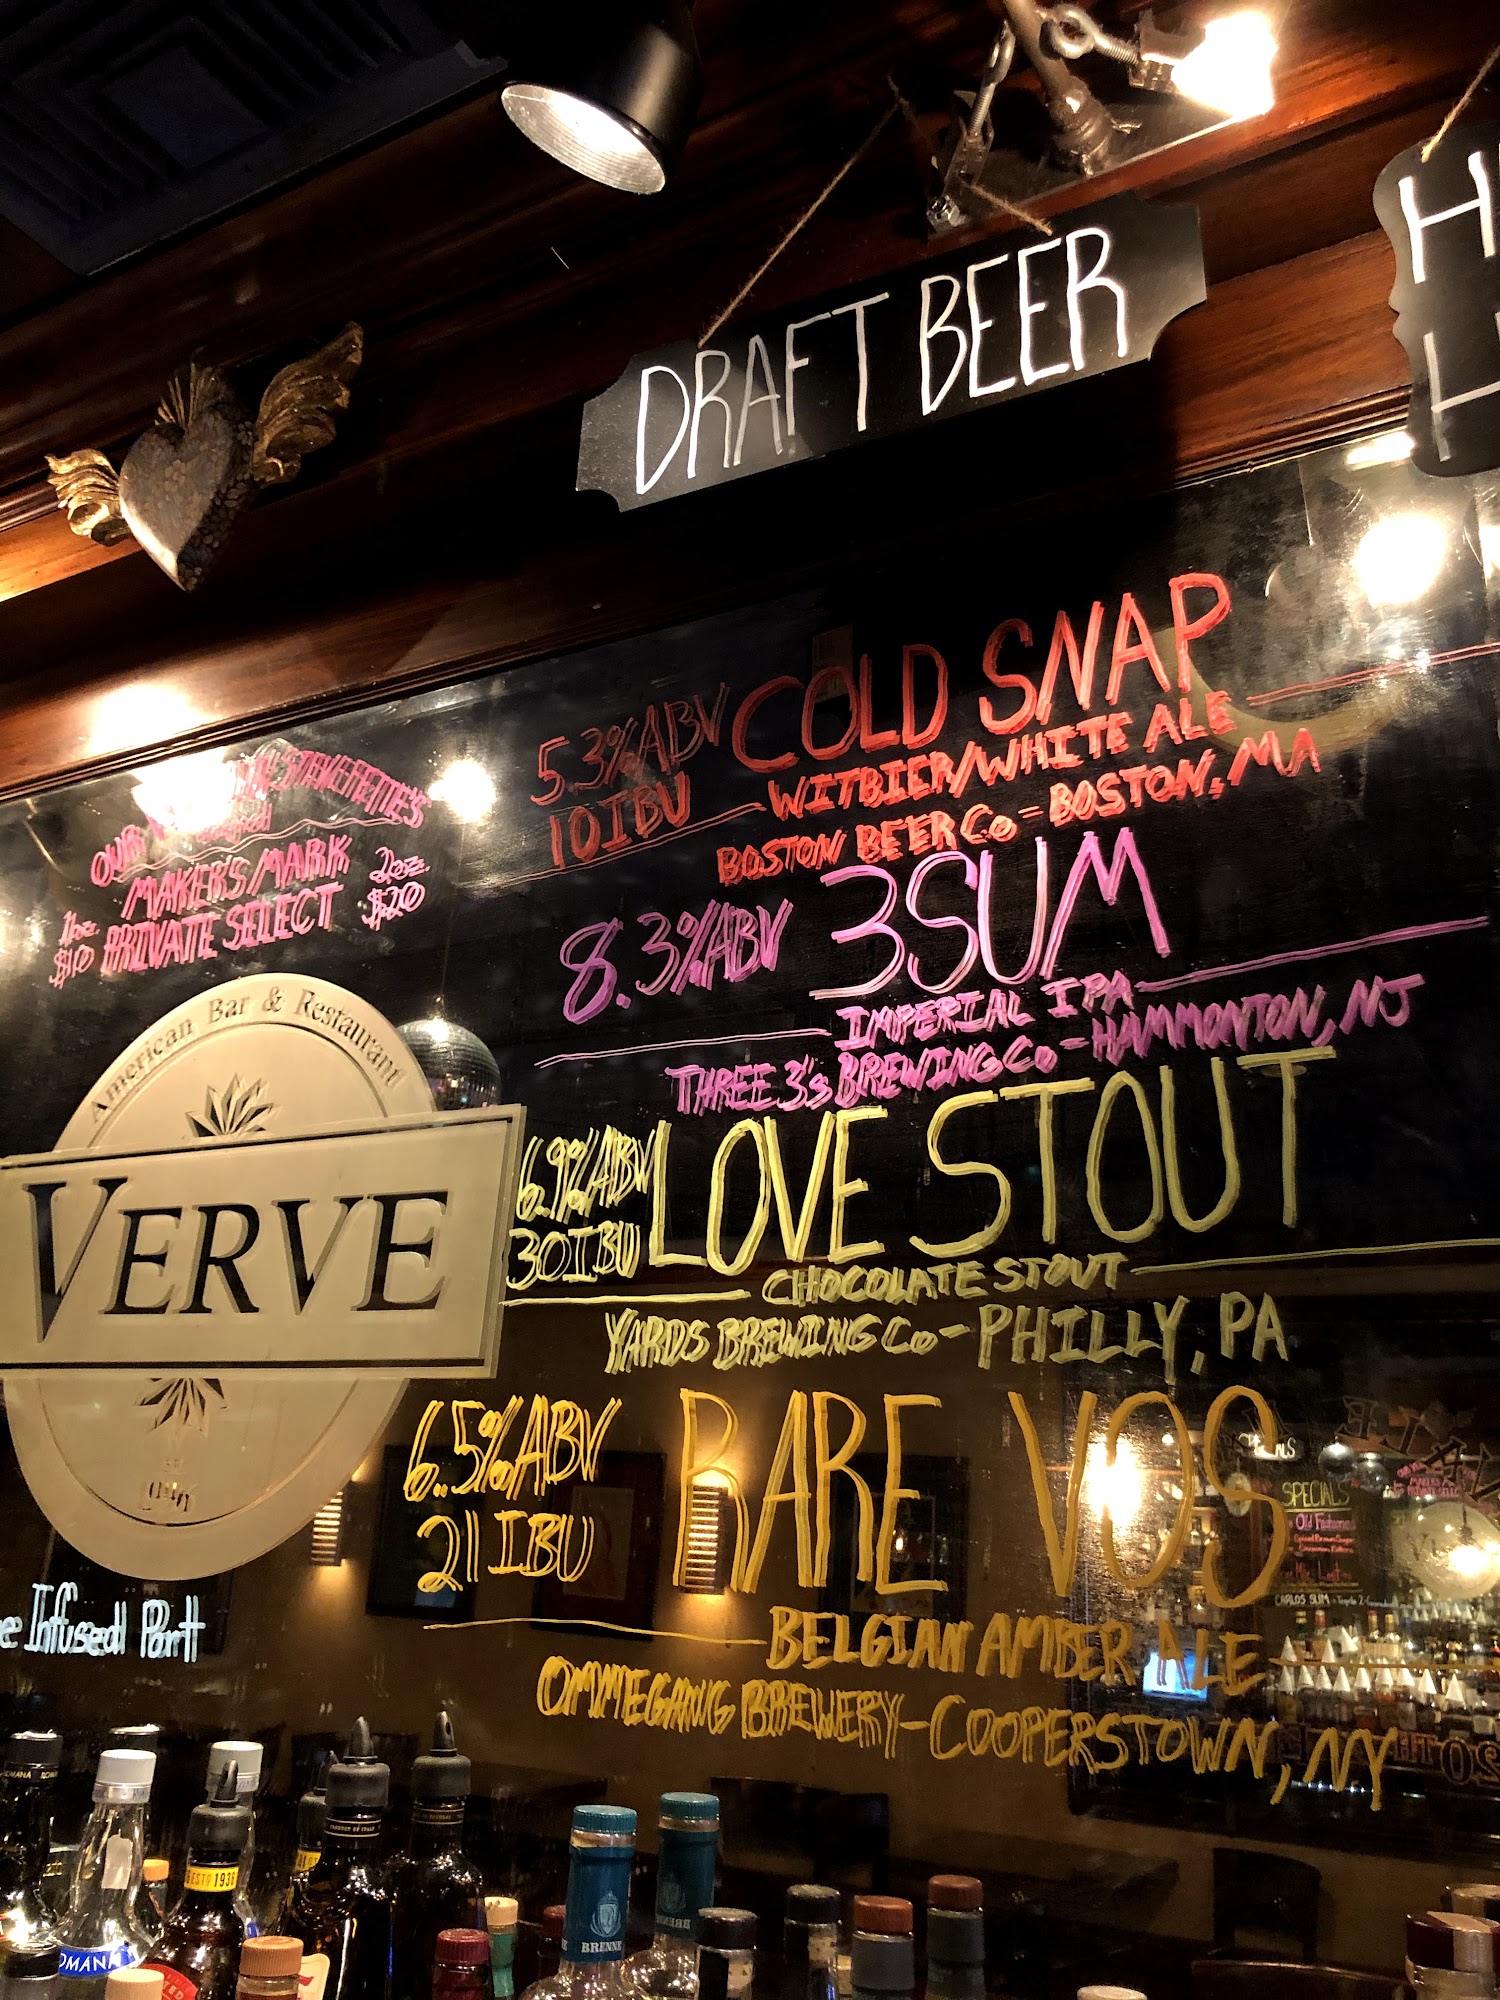 DRAFT BEER
H
L
5.3% ABV COLD SNAP
10 IBU WITBIER/WHITE ALE
BOSTON BEER Co - BOSTON, MA
8.3% ABV 3SUM
IMPERIAL IPA
THREE 3's BREWING Co - HAMMONTON, NJ
6.9% ABV LOVE STOUT
30 IBU
CHOCOLATE STOUT
YARDS BREWING Co - PHILLY, PA
6.5% ABV RARE VOS
21 IBU
BELGIAN AMBER ALE
OMMEGANG BREWERY - COOPERSTOWN, NY
OUR
MAKER'S MARK 2oz.
1oz PRIVATE SELECT $20
$10
American Bar & Restaurant
VERVE
Infused Port
SPECIALS
Old Fashioned
ESTD 1936
OMANA
BRENNE